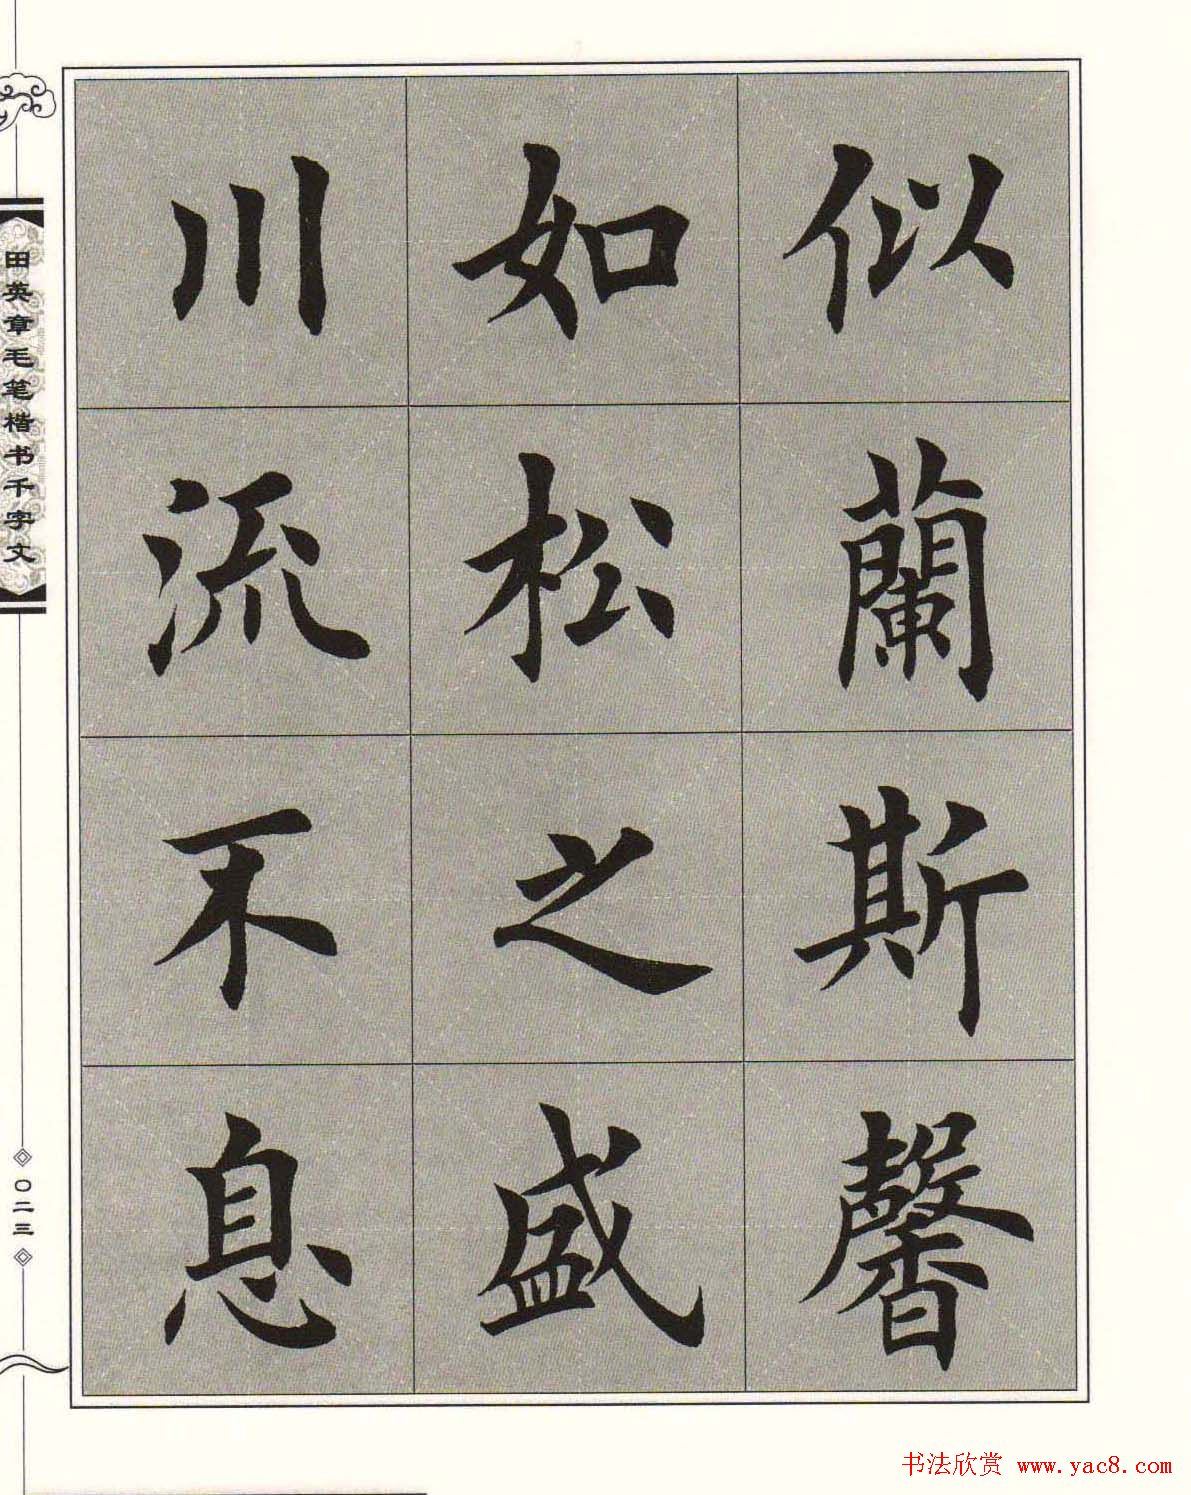 似蘭斯馨
如松之盛
川流不息
田英章毛笔楷书千字文
〇二三
书法欣赏 www.yac8.com